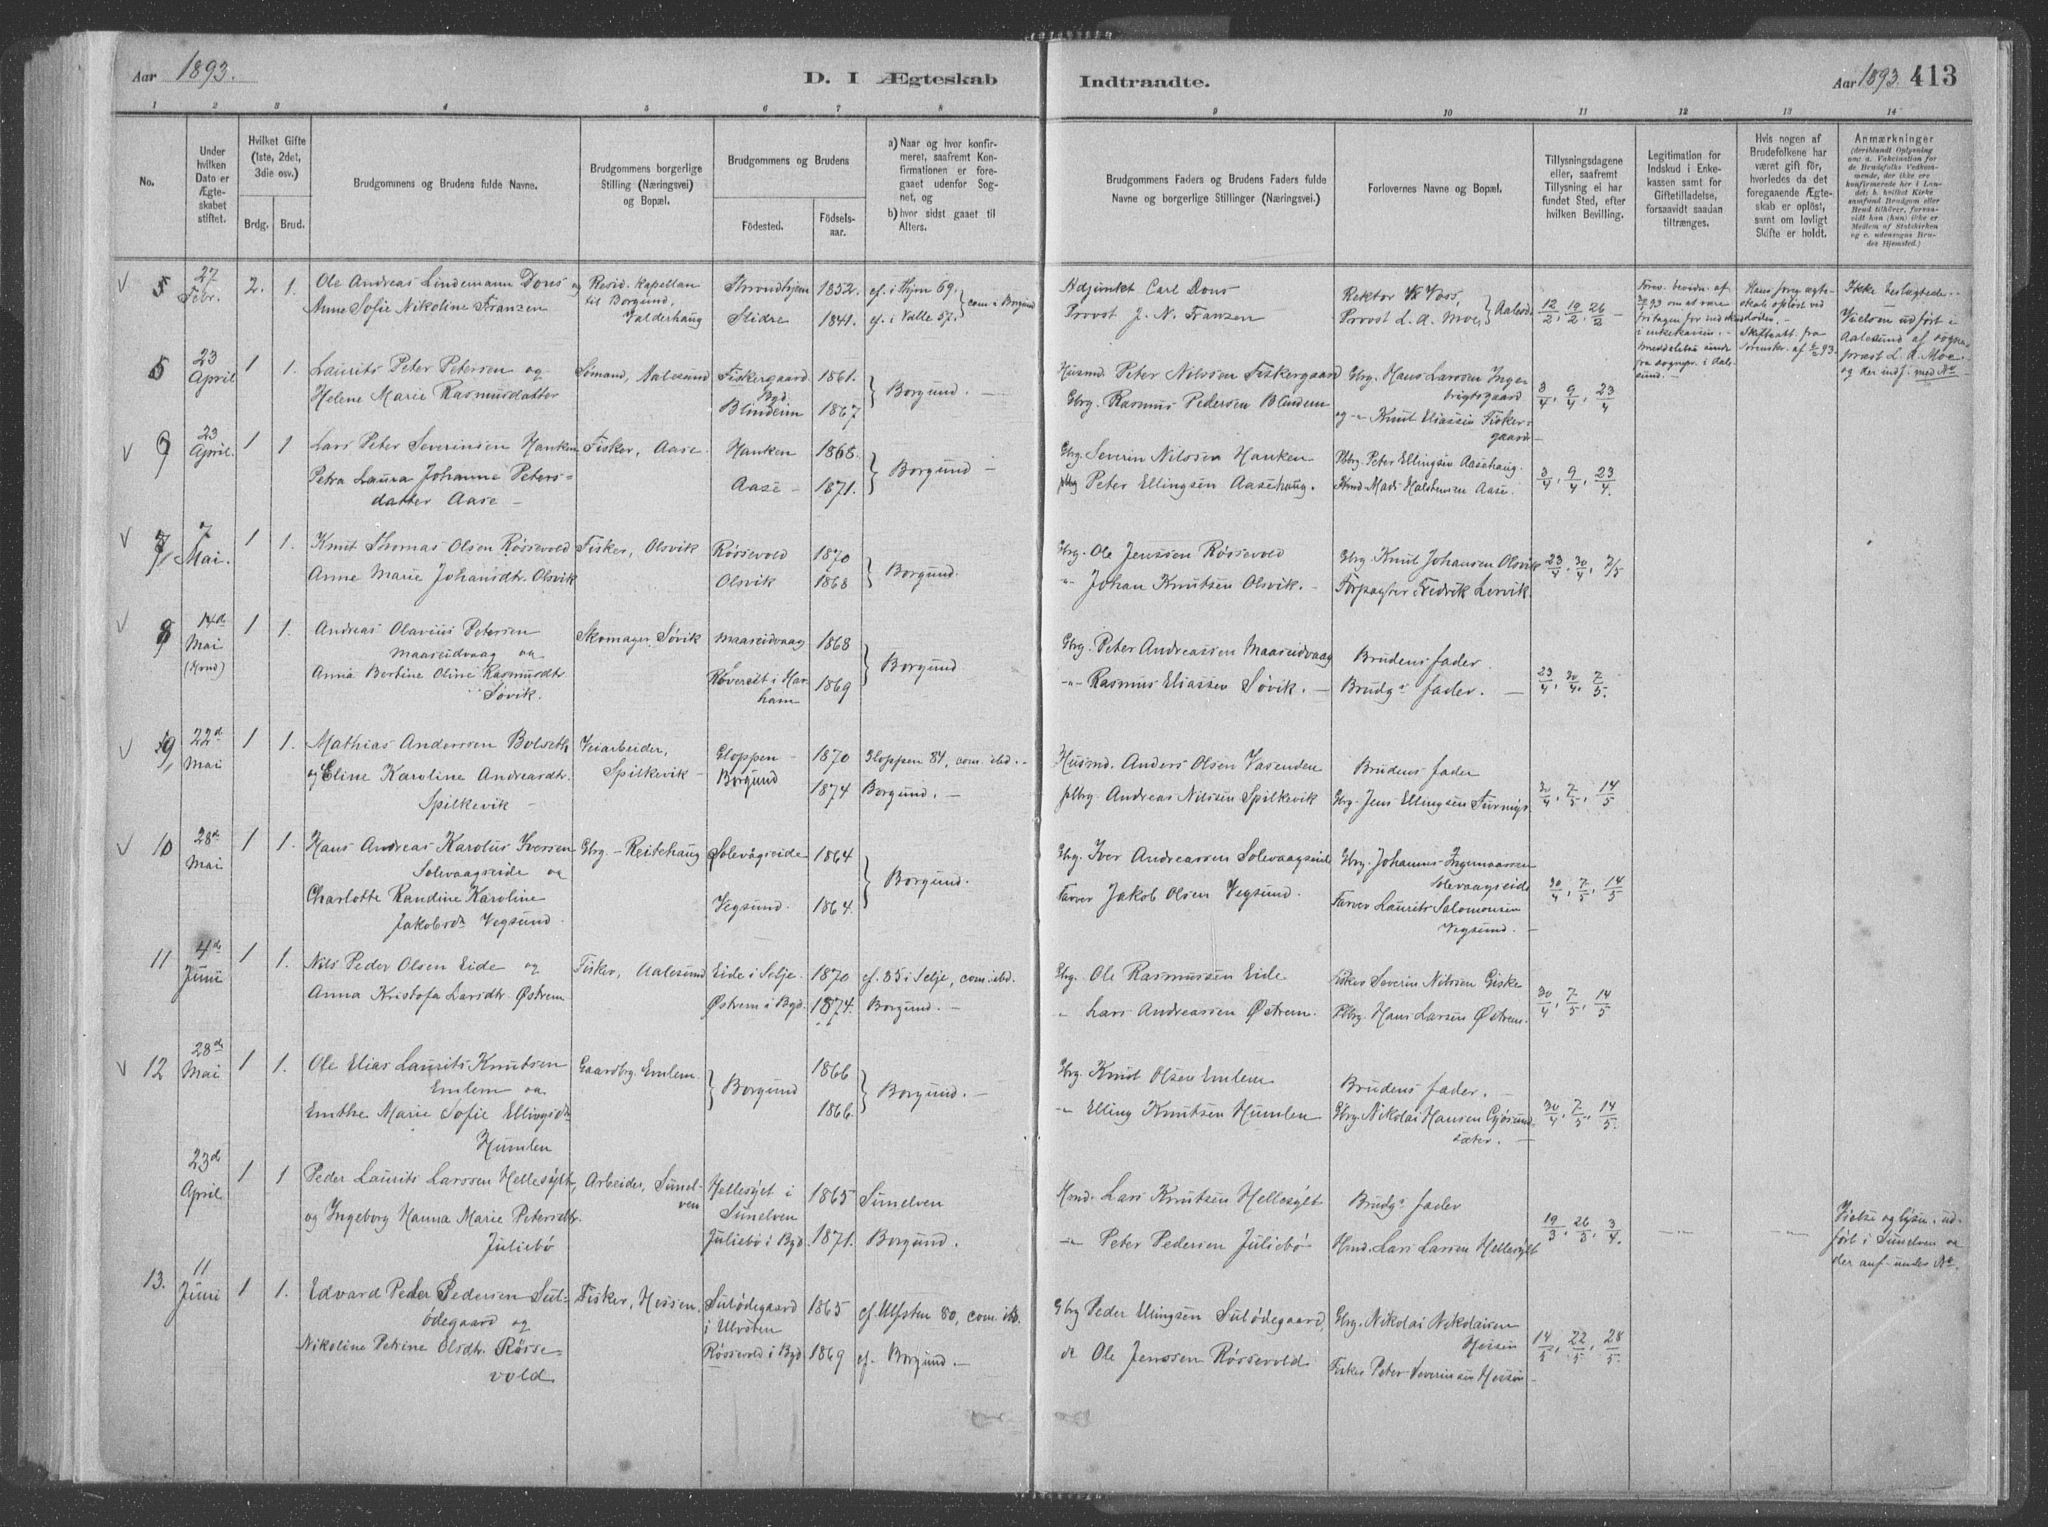 Aar 1893.
D. I Ægteskab
Indtraadte.
Aar 1893. 413
1 2 3 4 5 6 7 8 9 10 11 12 13 14
No.
Under hvilken Dato er Ægteskabet stiftet.
Hvilket Gifte (1ste, 2det, 3die osv.)
Brdg. Brud.
Brudgommens og Brudens fulde Navne.
Brudgommens borgerlige Stilling (Næringsvei) og Bopæl.
Brudgommens og Brudens
Fødested. Fødselsaar.
a) Naar og hvor konfirmeret, saafremt Konfirmationen er foregaaet udenfor Sognet, og
b) hvor sidst gaaet til Alters.
Brudgommens Faders og Brudens Faders fulde Navne og borgerlige Stillinger (Næringsvei.)
Forlovernes Navne og Bopæl.
Tillysningsdagene eller, saafremt Tillysning ei har fundet Sted, efter hvilken Bevilling.
Legitimation for Indskud i Enkekassen samt for Giftetilladelse, forsaavidt saadan tiltrænges.
Hvis nogen af Brudefolkene har været gift før, hvorledes da det foregaaende Ægteskab er opløst, samt om lovligt Skifte er holdt.
Anmærkninger
(deriblandt Oplysning om: a. Vakcination for de Brudefolks Vedkommende, der ikke ere konfirmerede her i Landet; b. hvilket Kirkesamfund Brudgom eller Brud tilhører, forsaavidt han (hun) ikke er Medlem af Statskirken og c. udensogns Brudes Hjemsted.)
5 27 Febr. 2. 1. Ole Andreas Lindemann Dons og Resid. kapellan Throndhjem 1852. cf. i Thjem 69. } com. i Borgund
Anne Sofie Nikoline Franzen til Borgund, Valderhaug Slidre 1841. cf. i Valle 57.
Adjunkt Carl Dons Rektor Voss, } Aalesd. 12/2, 19/2, 26/2
Provst J. N. Franzen Provst L. A. Moe,
Ikke beslægtede. Vielsen udført i Aalesund af sognepræst L. A. Moe og der indf. med No
5 23 April 1 1. Laurits Peter Petersen og Sømand, Aalesund Fiskergaard Bgd. 1861. } Borgund.
Helene Marie Rasmusdatter Blindeim 1867
Husmd. Peter Nilssen Fiskergaard Gbrg. Hans Larssen Ingebrigtsgaard 3/4, 9/4, 23/4
Gbrg. Rasmus Pedersen Blindem og Knut Eliassen Fiskergaard
6 23 April. 1 1 Lars Peter Severinsen Hanken Fisker, Aase Hanken 1868. } Borgund
Petra Laura Johanne Petersdatter Aase Aase 1871.
Gbrg. Severin Nilssen Hanken Plbrg. Peter Ellingsen Aasehaug. 3/4, 9/4, 23/4.
plbrg Peter Ellingsen Aasehaug. Hmd. Mads Halstensen Aase.
7 7 Mai. 1 1. Knut Thomas Olsen Røssevold Fisker, Olsvik Røssevold 1870 } Borgund.
Anne Marie Johansdtr. Olsvik Olsvik 1868
Gbrg. Ole Jenssen Røssevold Gbrg. Knut Johansen Olsvik 23/4, 30/4, 7/5
" Johan Knutsen Olsvik. Forpagter Fredrik Lervik.
8 14de Mai 1 1. Andreas Olavius Petersen Maaseidvaag og Skomager, Søvik Maaseidvaag 1868 } Borgund
Anna Bertine Oline Rasmusdtr Søvik. i Harham 1869
Gbrg. Peter Andreassen Maaseidvaag Brudens fader. 23/4, 30/4, 7/5.
" Rasmus Eliassen Søvik. Brudgs fader.
9 22d Mai 1 1. Mathias Anderssen Bolseth Veiarbeider, Spilkevik Gloppen 1870 Gloppen 84, com. ibd.
og Eline Karoline Andreasdtr. Spilkevik Borgund 1874 Borgund.
Husmd. Anders Olsen Vasenden Brudens fader 30/4, 7/5, 14/5
plbrg. Andreas Nilssen Spilkevik Gbrg. Jens Ellingsen
10 28de Mai 1 1. Hans Andreas Karolus Iversen Solevaagseide og Gbrg – Reitehaug Solevågseide 1864 } Borgund.
Charlotte Randine Karoline Jakobsdr Vegsund. Vegsund. 1864.
Gbrg. Iver Andreassen Solevaagseide Gbrg. Johannes Ingemaassen Solevaagseide 30/4, 7/5, 14/5
Farver Jakob Olsen Vegsund. Farver Laurits Salomonsen Vegsund.
11 4de Juni 1 1. Nils Peder Olsen Eide og Fisker, Aalesund Eide i Selje. 1870 cf. 85 i Selje, com. ibd.
Anna Kristofa Larsdtr. Østrem Østrem i Bgd. 1874. Borgund.
Gbrg. Ole Rasmussen Eide Fisker Severin Nilssen Giske 30/4, 7/5, 14/5
" Lars Andreassen Østrem. Plbrg. Hans Larsen Østrem.
12 28de Mai 1 1. Ole Elias Laurits Knutsen Emlem og Gaardbrg. Emlem. } Borgund 1866 } Borgund.
Emthe Marie Sofie Ellingsdtr Humlen 1866.
Gbrg. Knut Olsen Emlem Brudens fader. 30/4, 7/5, 14/5.
" Elling Knutsen Humlen Gbrg. Nikolai Hansen Gjøsundsæter.
23de April 1 1 Peder Laurits Larssen Hellesylt, Arbeider, Sunelven Hellesylt i Sunelven 1865 Sunelven
og Ingeborg Hanna Marie Petersdtr. Juliebø Juliebø i Bgd. 1871. Borgund.
Hmd. Lars Knutsen Hellesylt Brudgs fader 19/3, 26/3, 3/4.
" Peter Pedersen Juliebø Hmd. Lars Larsen Hellesylt
Vielse og lysn. udført i Sunelven og der anf. under No
13. 11 Juni 1 1. Edvard Peder Pedersen Sulødegaard og Fisker, Hessen. Sulødegaard i Ulvsten 1865 cf. Ulfsten 80, com. ib.
Nikoline Petrine Olsdtr. Røssevold Røssevold i Bgd 1869 cf. Borgund.
Gbrg Peder Ellingsen Sulødegaard, Gbrg. Nikolai Nikolaisen Hessen 14/5, 22/5, 28/5.
do Ole Jenssen Røssevold Fisker Peter Severinsen Hessen